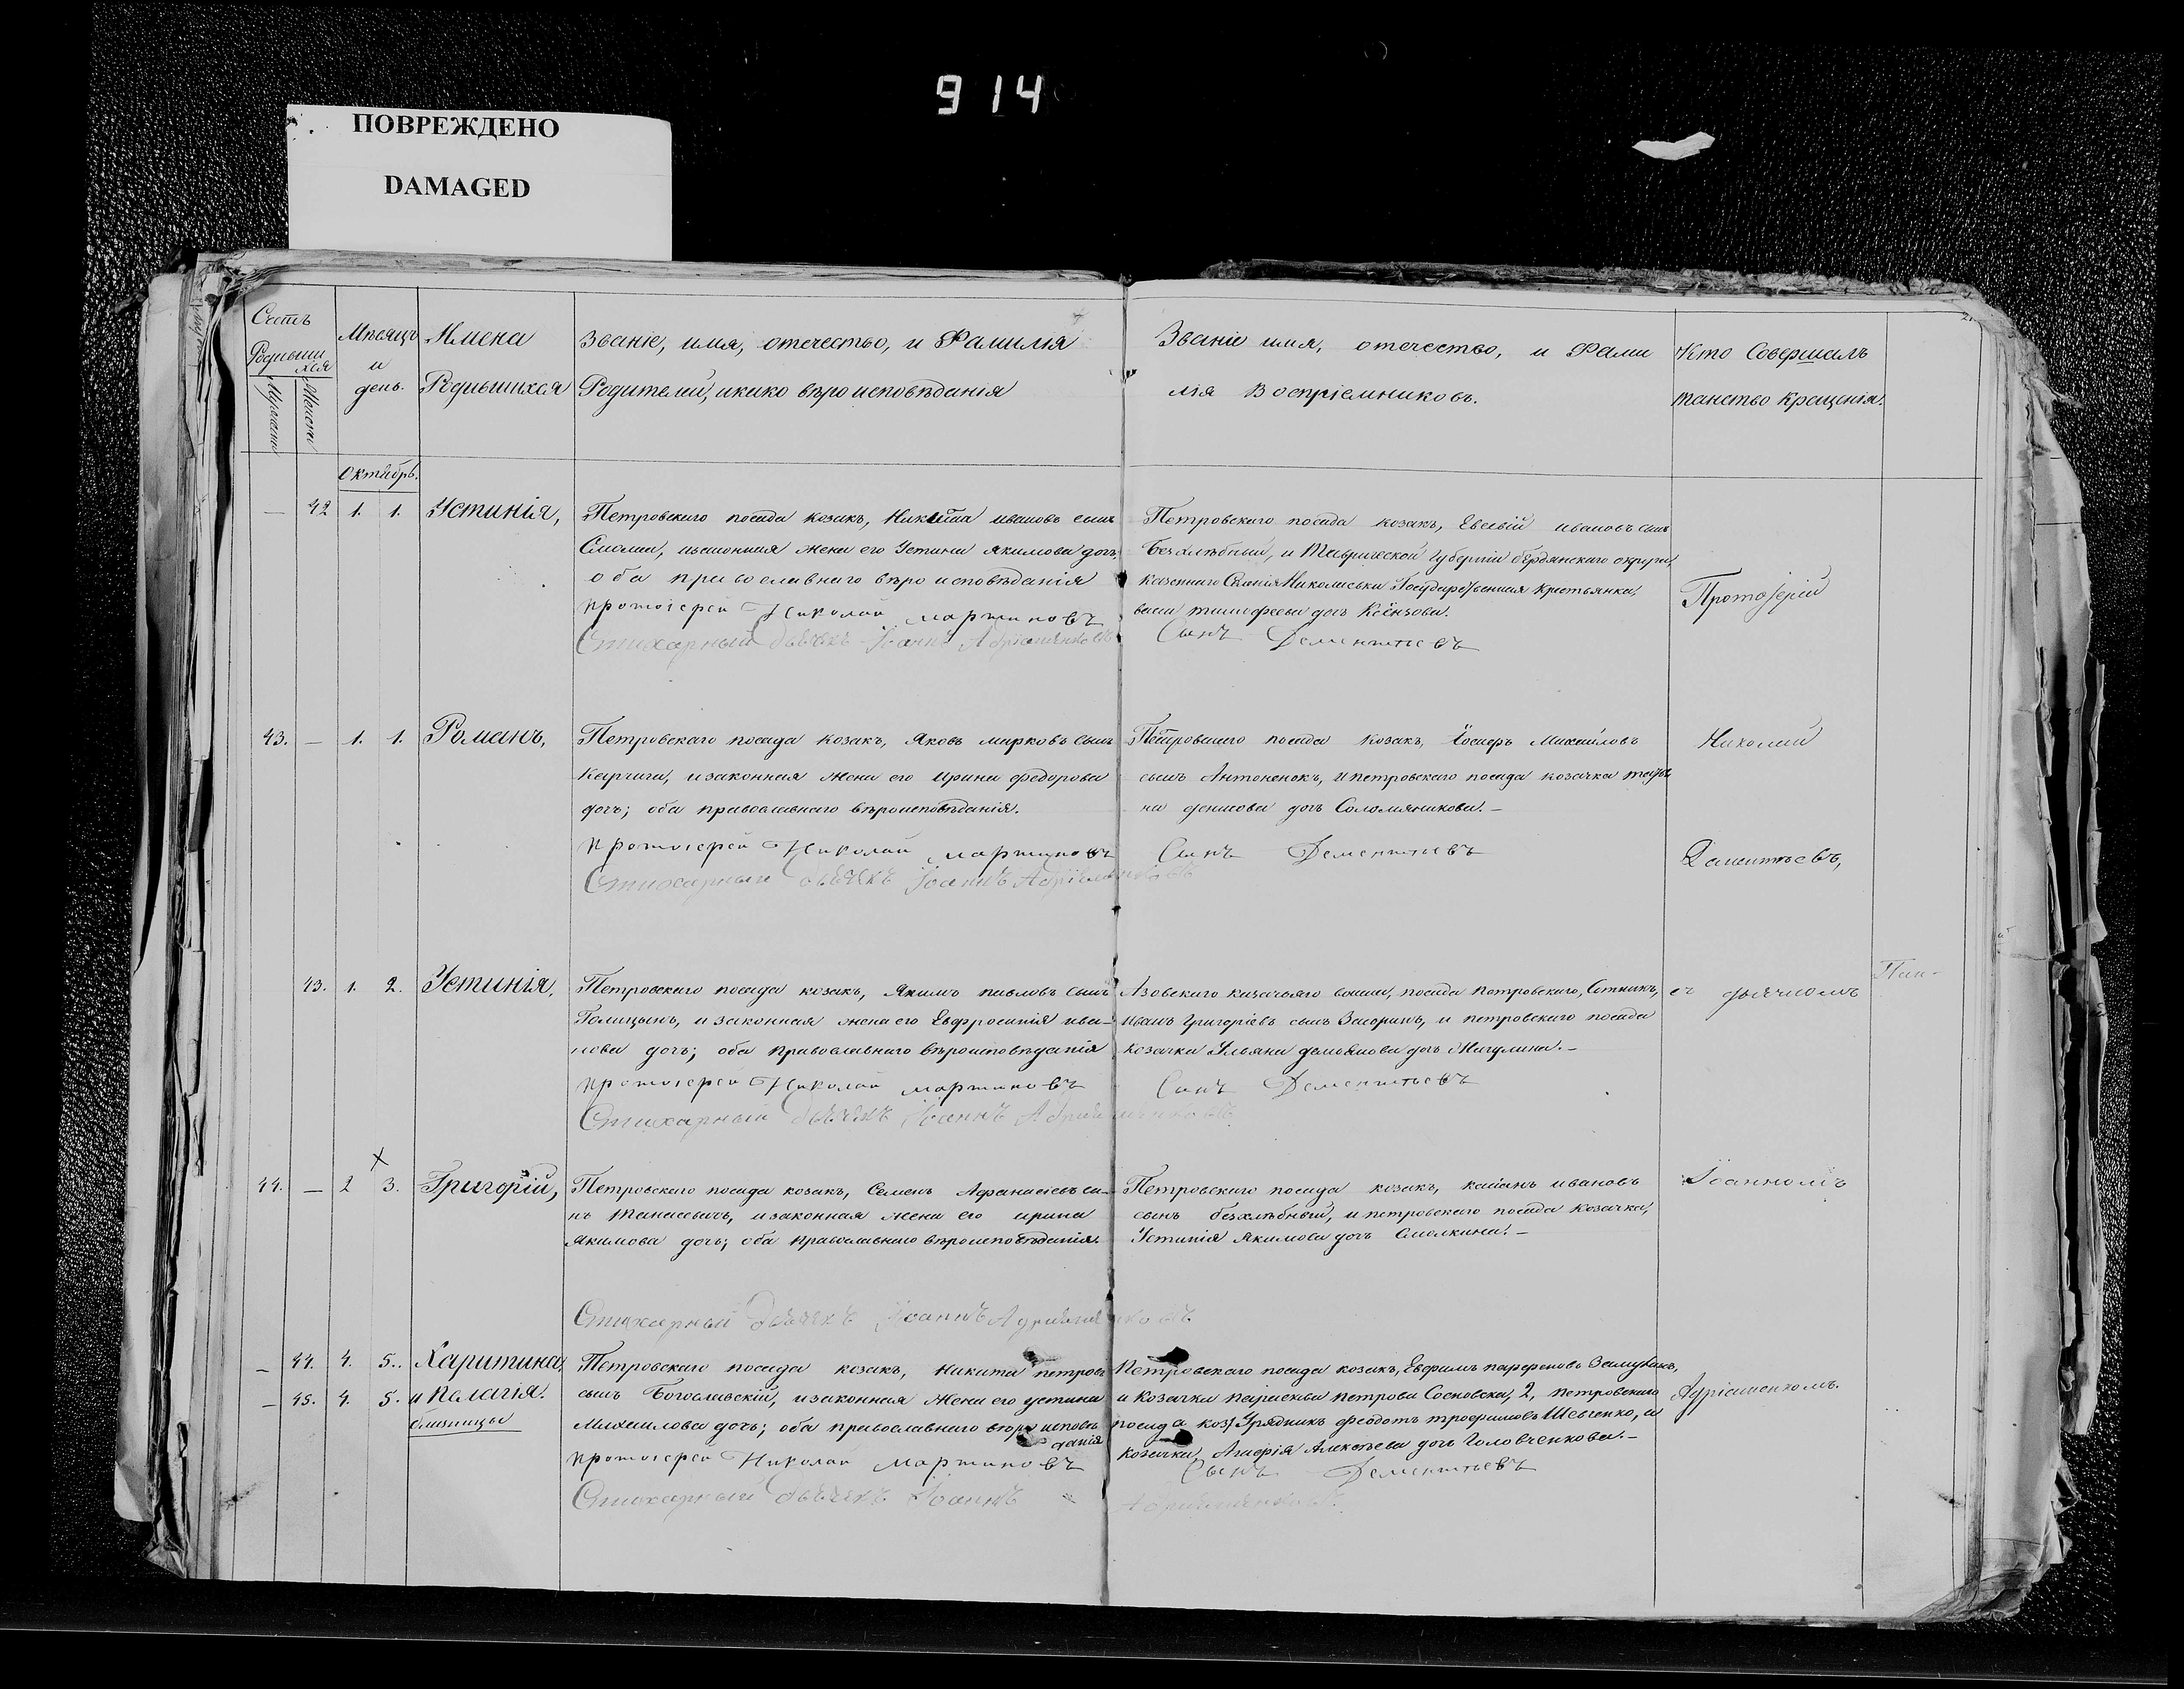 914
ПОВРЕЖДЕНО
DAMAGED
Счетъ
Родивши
хся
Мѣсяцъ
и
день.
Имена
Родившихся
Званіе, имя, отечество, и Фамилія
Родителей, и какого вѣроисповѣданія
Званіе имя, отечество, и Фами
лія Воспріемниковъ.
Кто Совершалъ
таинство крещенія.
Октябрь.
— 42 1. 1. Устинія,
Петровскаго посада козакъ, Никита ивановъ сынъ
законная жена его Устина якимова дочь,
оба православнаго вѣроисповѣданія
протоіерей Николай мартиновъ
Стихарный дьячекъ Іоаннъ Адріаменковъ
Петровскаго посада козакъ, Евсевій ивановъ сынъ
Безхлѣбный, и Таврической Губерніи бердянскаго округа,
казеннаго Николаевки Государственная крестьянка,
тимофеева дочь
Сынъ Дементьевъ
Протоіерей
43. — 1. 1. Романъ,
Петровскаго посада козакъ, Яковъ марковъ сынъ
изаконная жена его Ирина федорова
дочь; оба православнаго вѣроисповѣданія.
протоіерей Николай мартиновъ
Стихарный дьячекъ Іоаннъ Адріаменковъ
Петровскаго посада козакъ, Іосифъ Михайловъ
сынъ Антоненокъ, и петровскаго посада козачка
на денисова дочь Соломяникова.—
Сынъ Дементьевъ
Николай
Дементьевъ,
43. 1. 2. Устинія,
Петровскаго посада козакъ, Якимъ павловъ сынъ
Голицынъ, и законная жена его Евфросинія ива-
нова дочь; оба православнаго вѣроисповѣданія
протоіерей Николай мартиновъ
Стихарный дьячекъ Іоаннъ Адріаменковъ
Азовскаго казачьяго посада петровскаго, Сотникъ,
Иванъ Григоріевъ сынъ и петровскаго посада
козачка Ульяна дочь Магулина.—
Сынъ Дементьевъ
съ дьячкомъ
44. — 2 3. Григорій,
Петровскаго посада козакъ, Семенъ Афанасіевъ сы-
нъ Танасевичъ, изаконная жена его ирина
якимова дочь; оба православнаго вѣроисповѣданія.
Стихарный дьячекъ Іоаннъ Адріаменковъ
Петровскаго посада козакъ, ивановъ
сынъ безхлѣбный, и петровскаго посада козачка,
Устинія якимова дочь Смолкина.—
Іоанномъ
— 44. 4. 5. Харитина,
— 45. 4. 5. и Пелагія.
близницы
Петровскаго посада козакъ, никита петровъ
сынъ Богославскій, изаконная жена его устина
Михаилова дочь; оба православнаго вѣро исповѣ
данія
протоіерей Николай мартиновъ
Стихарный дьячекъ Іоаннъ Адріаменковъ
Петровскаго посада козакъ, Ефримъ парфеновъ
и Козачка петрова 2, петровскаго
посада коз Урядникъ феодотъ трофимовъ Шевченко, и
козачка, Агафія Алексѣева дочь Головченкова.—
Сынъ Дементьевъ
Адріаменкомъ.